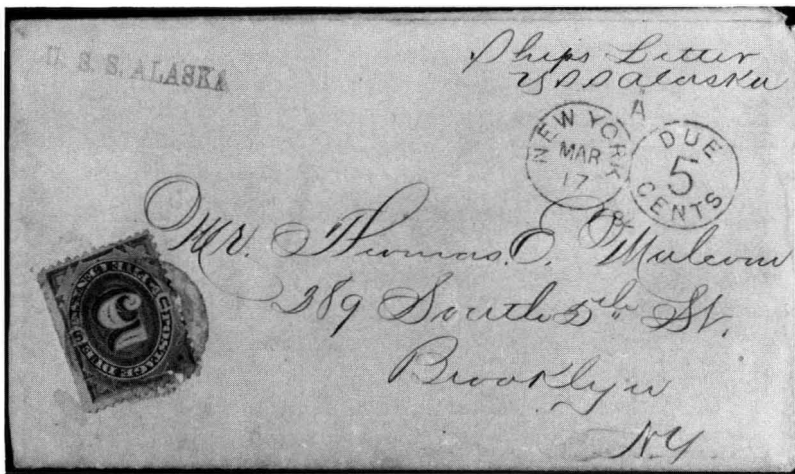 U. S. S. ALASKA
Ships Letter
USS Alaska
A
NEW YORK
MAR
17
DUE
5
CENTS
Mr. Thomas. E. Malcom
389 South 5th St.
Brooklyn
N.Y.
POSTAGE DUE
5